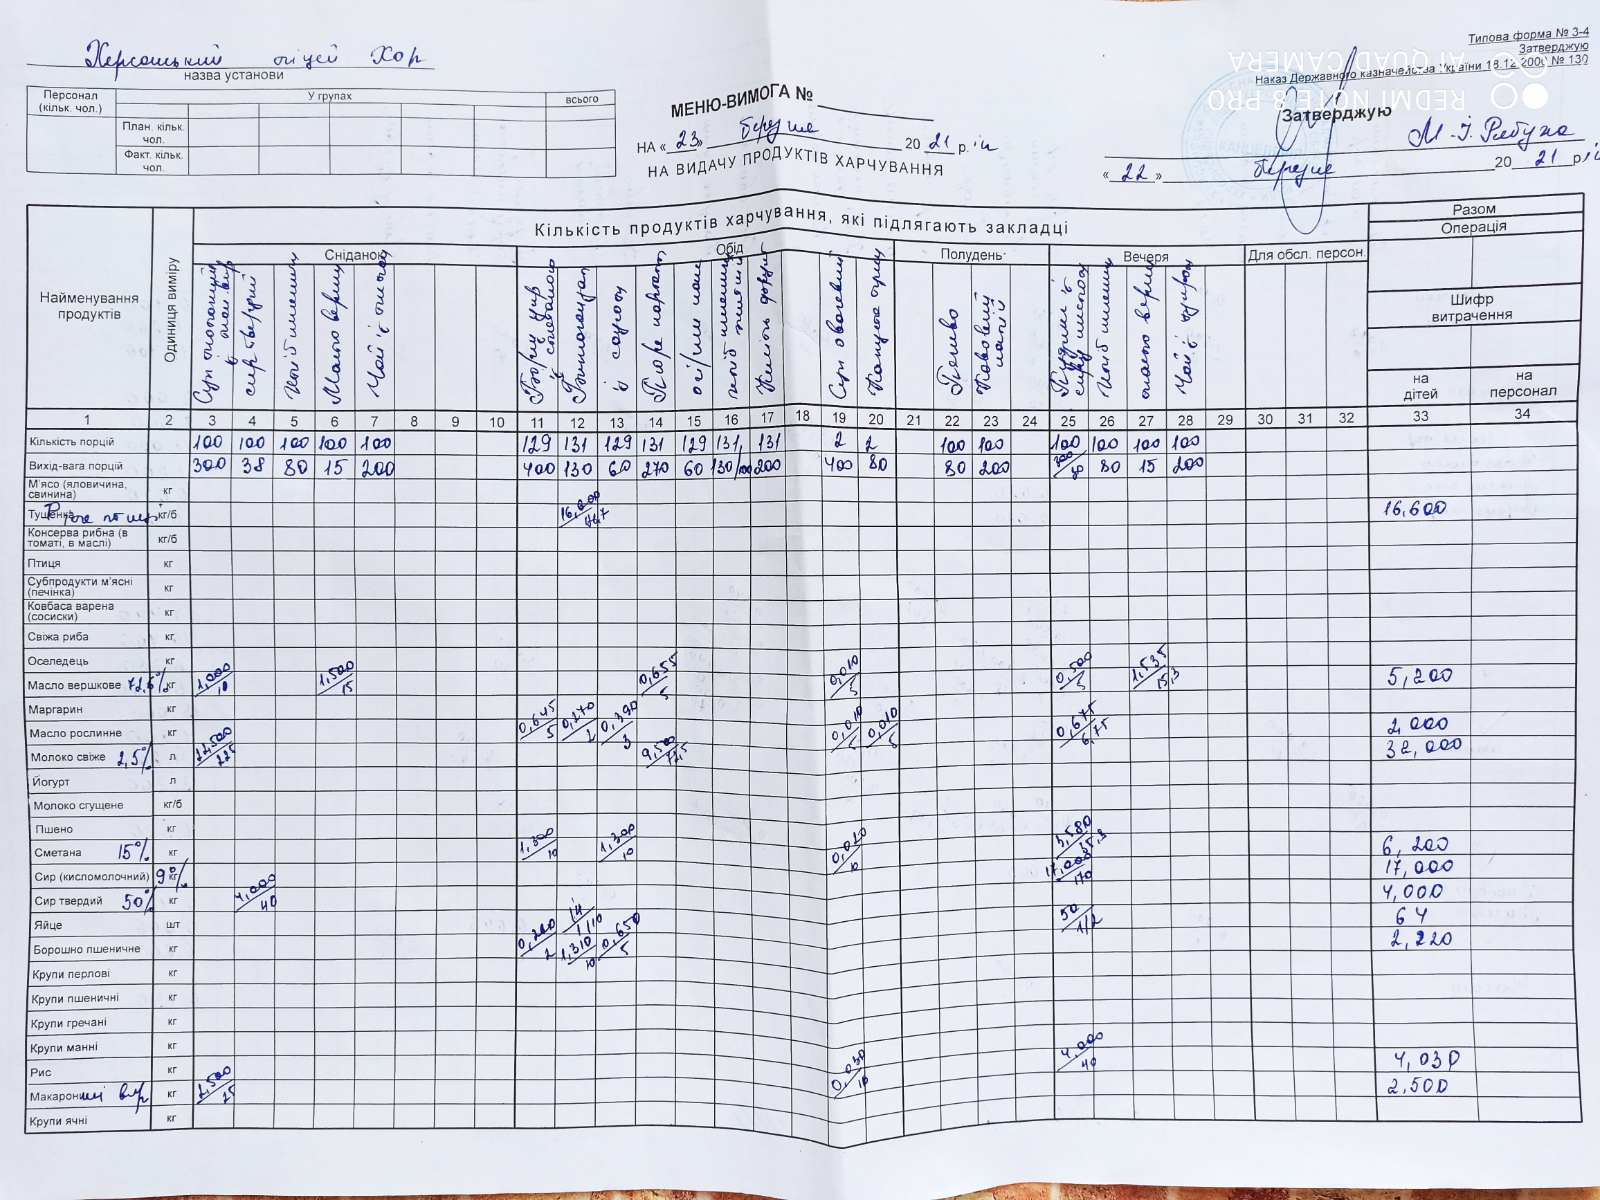 Типова форма № З-4
Затверджую
Наказ Державного казначейства України 18.12.2000 № 130
AI QUAD CAMERA
REDMI NOTE 8 PRO
Херсонський ліцей ХОР
назва установи
Персонал (кільк. чол.)
У групах
всього
План. кільк. чол.
Факт. кільк. чол.
МЕНЮ-ВИМОГА №
НА «23» березня 2021 р.
НА ВИДАЧУ ПРОДУКТІВ ХАРЧУВАННЯ
Затверджую
«22» березня 2021 р
Найменування продуктів
Одиниця виміру
Кількість продуктів харчування, які підлягають закладці
Разом
Операція
Шифр витрачення
на дітей
на персонал
Сніданок
Обід
Полудень
Вечеря
Для обсл. персон.
сир твердий
Хліб пшениц
Масло верш
Печиво
Хліб пшениц
масло верш
1 2 3 4 5 6 7 8 9 10 11 12 13 14 15 16 17 18 19 20 21 22 23 24 25 26 27 28 29 30 31 32 33 34
Кількість порцій 100 100 100 100 100 129 131 129 131 129 131 131 2 2 100 100 100 100 100 100
Вихід-вага порцій 300 38 80 15 200 400 130 60 270 60 130/100 200 400 80 80 200 80 15 200
М'ясо (яловичина, свинина) кг
Тушенка кг/б 16,600
Консерва рибна (в томаті, в маслі) кг/б
Птиця кг
Субпродукти м'ясні (печінка) кг
Ковбаса варена (сосиски) кг
Свіжа риба кг
Оселедець кг
Масло вершкове 72,6% кг 1,000/10 1,500/15 0,655/5 0,010/5 0,500/5 1,535/15,3 5,200
Маргарин кг
Масло рослинне кг 0,645/5 0,270/2 0,390/3 0,010/5 0,010/5 0,675/6,75 2,000
Молоко свіже 2,5% л 22,500/225 9,500/72,5 32,000
Йогурт л
Молоко сгущене кг/б
Пшено кг
Сметана 15% кг 1,300/10 1,300/10 0,020/10 3,580/35,8 6,200
Сир (кисломолочний) 9% кг 17,000/170 17,000
Сир твердий 50% кг 4,000/40 4,000
Яйце шт 14/1/10 50/1/2 64
Борошно пшеничне кг 0,260/2 1,310/10 0,650/5 2,220
Крупи перлові кг
Крупи пшеничні кг
Крупи гречані кг
Крупи манні кг
Рис кг 0,030/10 4,000/40 4,030
Макаронні вир кг 2,500/25 2,500
Крупи ячні кг